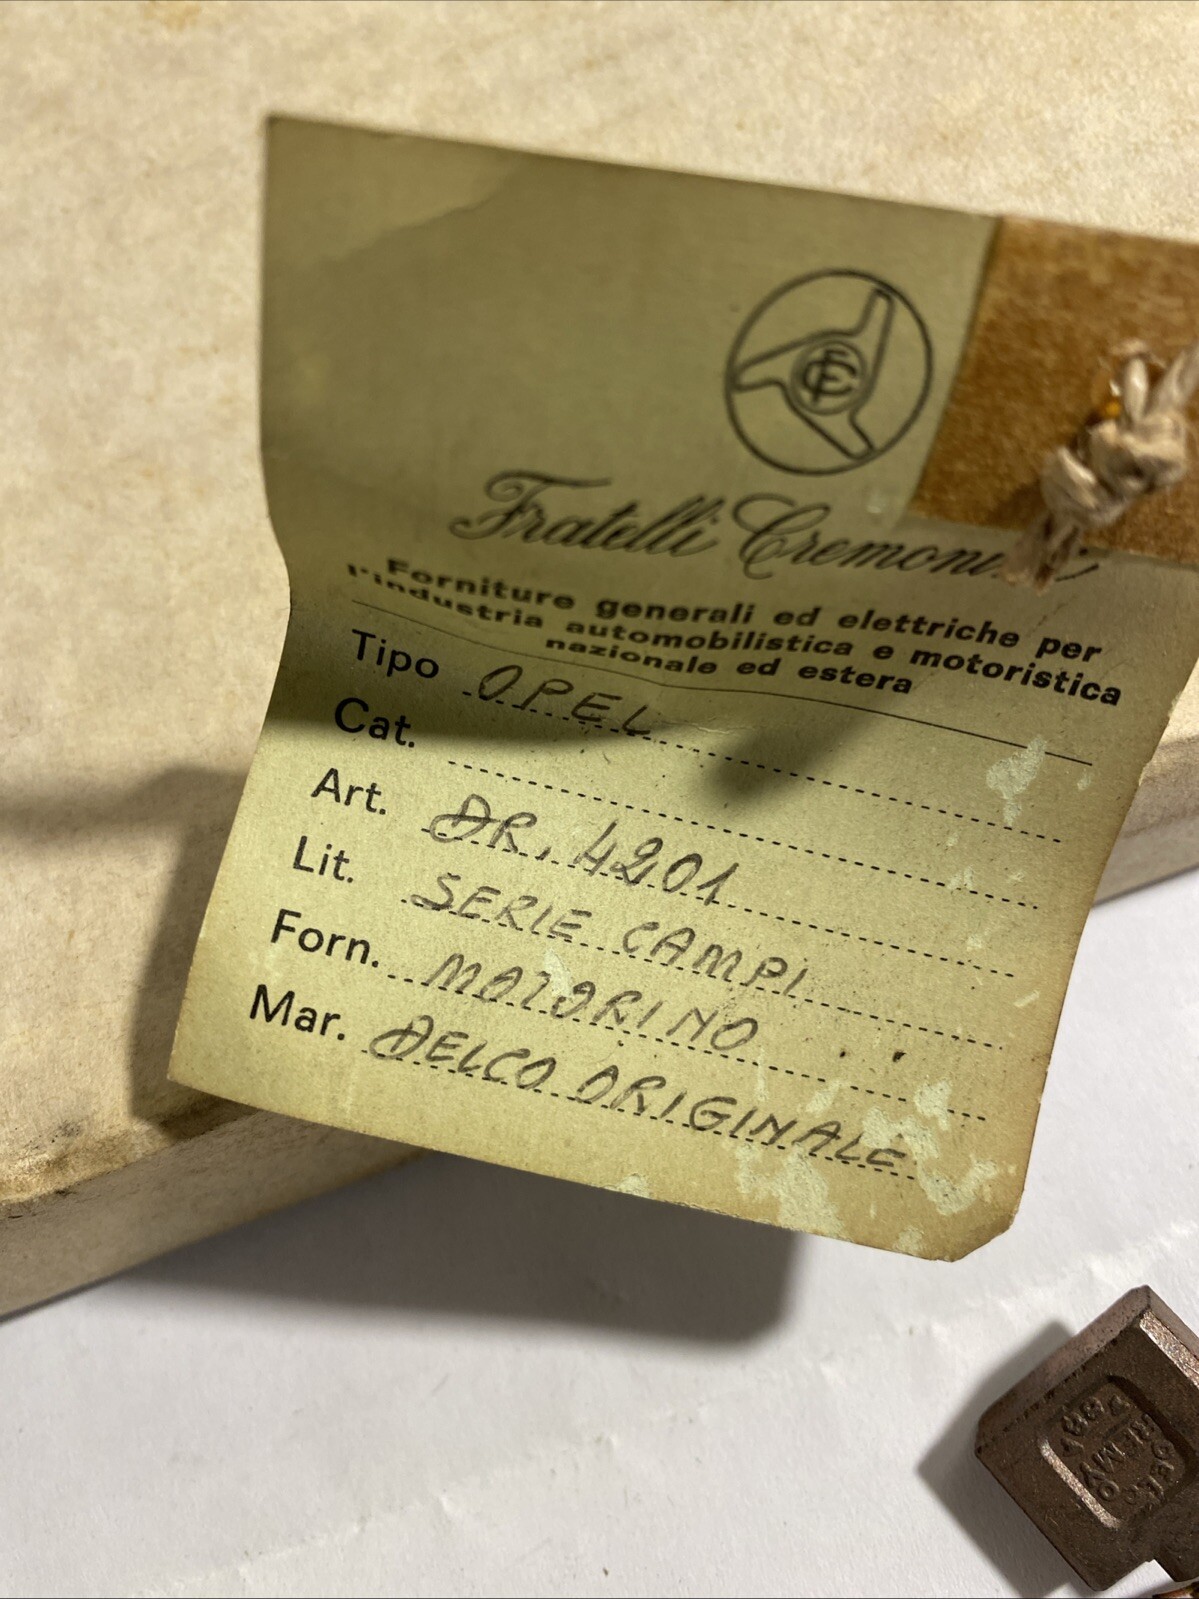 Fratelli
Forniture generali ed elettriche per
l'industria automobilistica e motoristica
nazionale ed estera
Tipo OPEL
Cat.
Art. DR. 4201
Lit. SERIE CAMPI
Forn. MOTORINO
Mar. DELCO ORIGINALE
DELCO
REMY